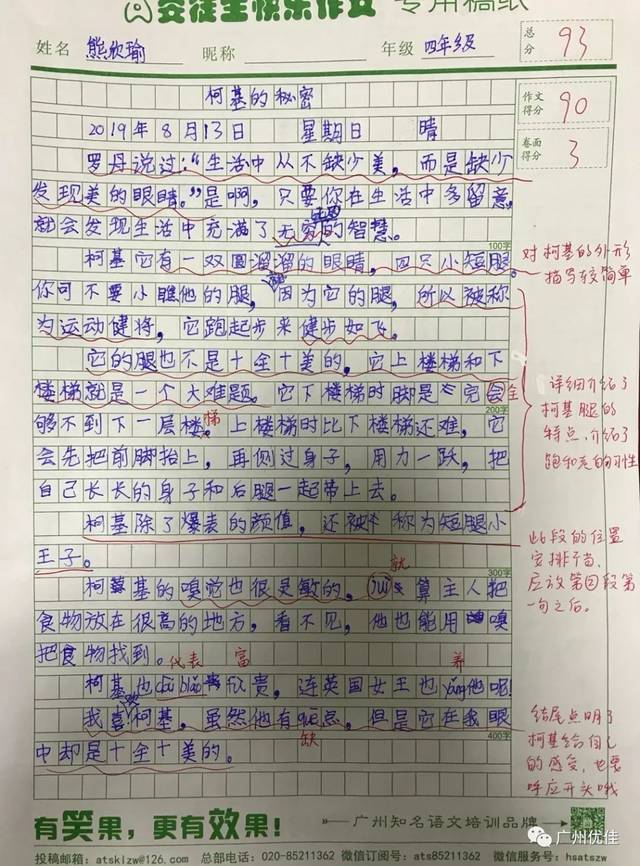 安徒生快乐作文 专用稿纸
姓名 熊欣瑜 昵称 年级 四年级
总分 93
作文得分 90
卷面得分 3
柯基的秘密
2019年8月13日 星期日 晴
罗丹说过:“生活中从不缺少美,而是缺少
发现美的眼睛。”是啊,只要你在生活中多留意,
就会发现生活中充满了无穷的智慧。
100字
柯基它有一双圆溜溜的眼睛,四只小短腿。
对柯基的外形
描写较简单
你可不要小瞧他的腿,因为它的腿,所以被称
为运动健将,它跑起步来健步如飞。
它的腿也不是十全十美的。它上楼梯和下
楼梯就是一个大难题。它下楼梯时脚是完全
200字
够不到下一层楼梯。上楼梯时比下楼梯还难,它
会先把前脚抬上,再侧过身子,用力一跃,把
自己长长的身子和后腿一起带上去。
详细介绍了
柯基腿的
特点,介绍了
的习性
柯基除了爆表的颜值,还被称为短腿小
王子。
此段的位置
安排不当,
应放第四段第
一句之后。
300字
柯基的嗅觉也很灵敏的。就 jiù 算主人把
食物放在很高的地方,看不见,他也能用嗅
把食物找到。
代表 富 养
柯基也dài biǎo欣贵,连英国女王也yǎng他呢!
我喜欢柯基,虽然他有quē点,但是它在我眼
缺
400字
中却是十全十美的。
结尾点明了
柯基给自己
的感受,也要
呼应开头哦
有笑果,更有效果!
广州知名语文培训品牌
投稿邮箱:atsklzw@126.com 总部电话:020-85211362 微信订阅号:ats85211362 微信服务号:hsatszw
广州优佳